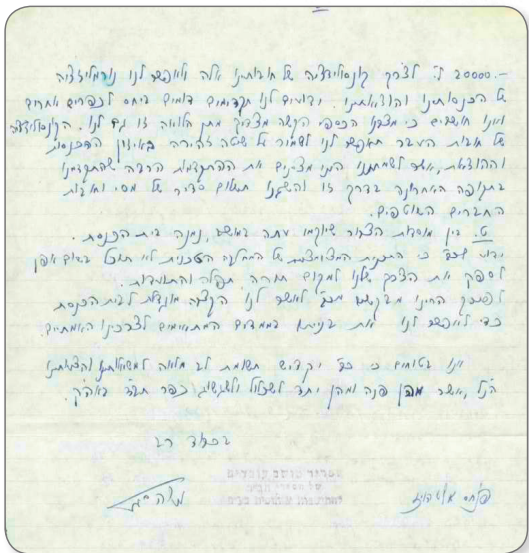 20000.- ל"י לצרך קונסולידציה של חובותינו אלה ולאפשר לנו נורמליזציה
של הכנסותינו והוצאותינו. ידועים לנו תקדימים דומים ביחס לכפרים אחרים
ואנו חושבים כי מצבנו הכספי הקשה מצדיק מתן הלואה זו גם לנו. הקונסולידציה
של חובות העבר תאפשר לנו לשמור על שטה זהירה באיזון ההכנסות
וההוצאות, אשר לשמחתנו הננו מציינים את ההתקדמות הרבה שהתקדמנו
בתקופה האחרונה בדרך זו והשגנו תשלום סדיר של מסי ואגרות
החברים השוטפים.
ט. בין מוסדות הצבור שיוקמו עתה במושב, נמנה בית הכנסת.
ידוע לכב' כי התכנית המצומצמת של המחלקה הטכנית לא תוכל בשום אופן
לספק את הצרך שלנו למקום תורה, תפלה והתועדות.
לפיכך הננו מבקשים מכב' לאשר לנו הקצבה מוגדלת לבית הכנסת
כדי לאפשר לנו את בניתו בממדים המתאימים לצרכינו האמתיים.
אנו בטוחים כי כב' יקדיש תשומת לב מלאה למשאלותינו והצעותינו
הנ"ל, אשר מהן פנה ומהן יתד לשכלול ולשגשוג כפר חב"ד באה"ק.
בכבוד רב
פנחס